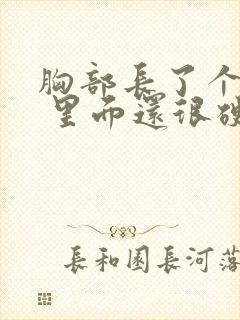 胸部長了个
里面還很硬
長和園長河落